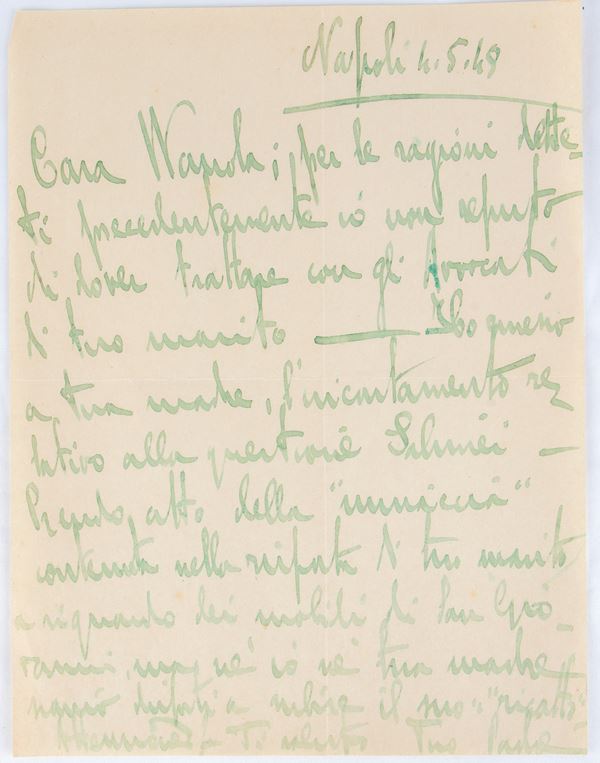 Napoli 4.5.48
Cara Wanda; per le ragioni dette-
ti precedentemente io non reputo
di dover trattare con gli Avvocati
di tuo marito —
a tua madre, l'incartamento re
lativo alla questione —
Prendo atto della "minaccia"
contenuta nella risposta di tuo marito
a riguardo dei mobili di San Gio-
vanni, ma nè io nè tua madre
siamo disposti a subire il suo "ricatto"
Ti saluto Tuo Padre